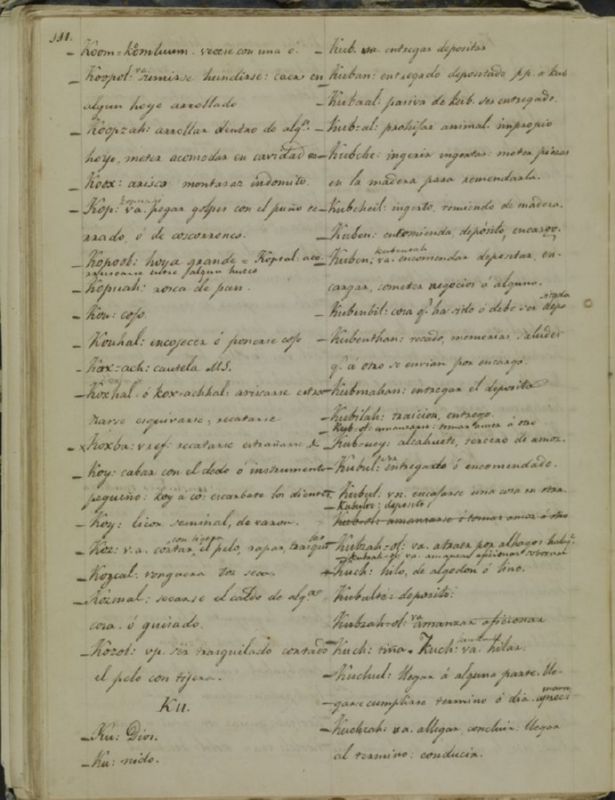 111.
Koom=komtuum. vease con una o.
Koopol: va sumirse hundirse: caer en
algun hoyo arrollado
Koopzah: arrollar dentro de algn.
hoyo, meter acomodar en cavidad
Koox: arisco montaraz indomito.
Kop: va. pegar golpes con el puño ce-
rrado, ó de coscorrones.
Kopool: hoya grande = Koptal
Kopuah: rosca de pan.
Kou: cojo.
Kouhal: encojecer ó ponerse cojo
Kox-ach: cautela MS.
Koxhal ó kox-achhal: arriscarse estra-
ñarse esquivarse, recatarse
Koxba: v ref: recatarse estrañarse &
Koy: cabar con el dedo ó instrumento
pequeño: koy a co: escarbate los dientes
Koy: licor seminal, de varon.
Koz: v.a. cortar con tijera el pelo, rapar, trasqui lar
Kozcal: ronquera voz seca
Kozmal: secarse el caldo de alga
cosa ó guisado.
Kozol: vp. ser trasquilado cortado
el pelo con tijera.
Ku.
Ku: Dios.
Ku: nido.
Kub. va. entregar depositar
Kuban: entregado depositado, pp. a kub
Kubaal: pasiva de kub. ser entregado.
Kub-al: prohijar animal impropio
Kubche: ingerir ingertar: meter piezas
en la madera para remendarla.
Kubcheil: ingerto, remiendo de madera.
Kuben: encomienda deposito, encargo.
Kuben; va. encomendar depositar, en-
cargar, cometer negocios á alguno.
Kubenbil: cosa q.e ha sido ó debe ser depo sitada
Kubenthan: recado, memorias, saludes
q.e á otro se envian por encargo.
Kubmahan: entregar el deposito
Kubilah: traicion, entrego.
Kub-ol: amanzarse: tomar amor á otro
Kub-uey: alcahuete, tercero de amor.
Kubul: entregarlo ó encomendado.
Kubul. vn. encajarse una cosa en otra.
Kubulte: deposito
Kub-ol: amanzarse ó tomar amor á otro
Kubzah-ol: va. atraer por alhagos
Kuch: hilo, de algodon ó lino.
Kubulte: deposito:
Kubzah-ol: va amanzar aficionar
Kuch: tiña. Kuch: va. hilar.
Kuchul: llegar á alguna parte. lle-
gar ó cumplirse termino ó dia.
Kuchzah: va. allegar, concluir. llegar
al termino: conducir.